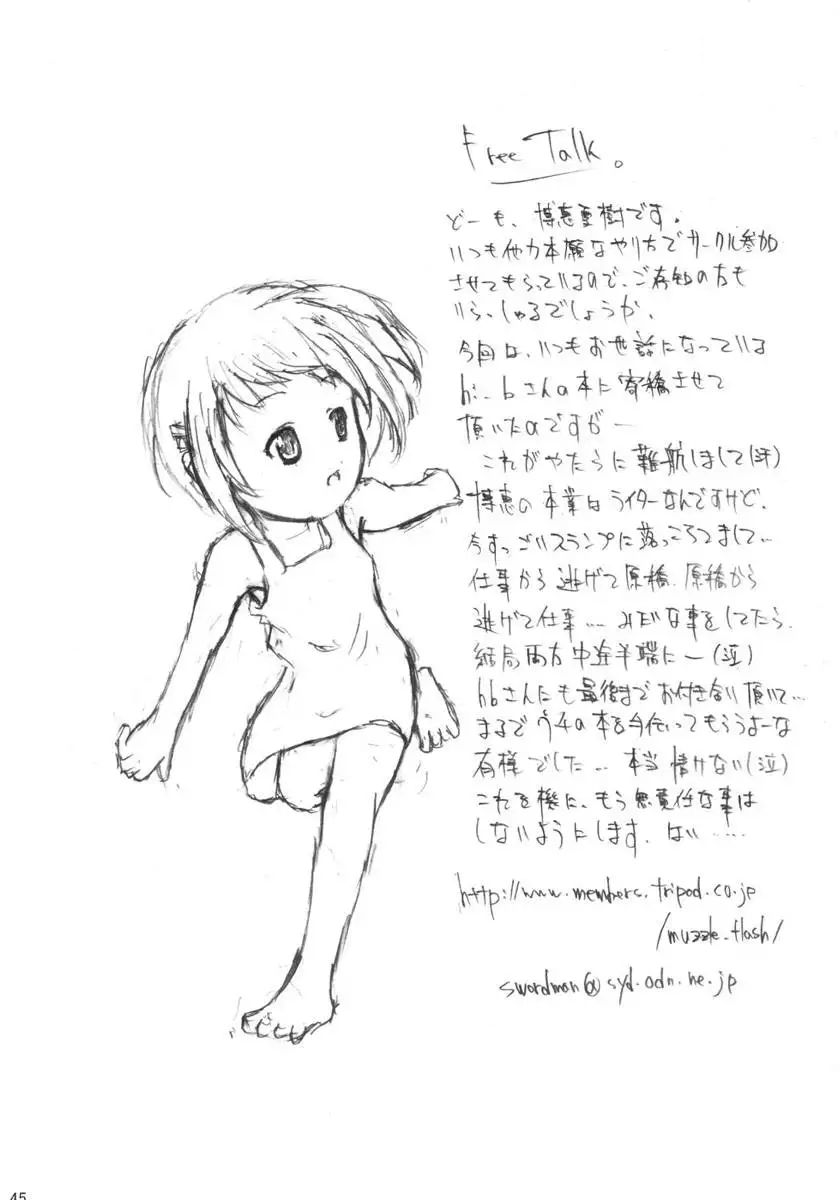 Free Talk。
どーも、博恵亜樹です。
いつも他力本願なやり方でサークル参加
させてもらっているので、ご存知の方も
いらっしゃるでしょうか。
今回は、いつもお世話になっている
さんの本に寄稿させて
頂いたのですが―
これがやたらに難航しまして(汗)
博恵の本業はライターなんですけど、
今すっごいスランプに落っこちてまして…
仕事から逃げて原稿、原稿から
逃げて仕事…みたいな事をしてたら、
結局両方中途半端に―(泣)
hbさんにも最後までお付き合い頂いて…
まるでウチの本を手伝ってもらうよーな
有様でした…本当情けない(泣)
これを機に、もう無責任な事は
しないようにします、はい……
http://www.members.tripod.co.jp
/muzzle_flash/
swordman@syd.odn.ne.jp
45